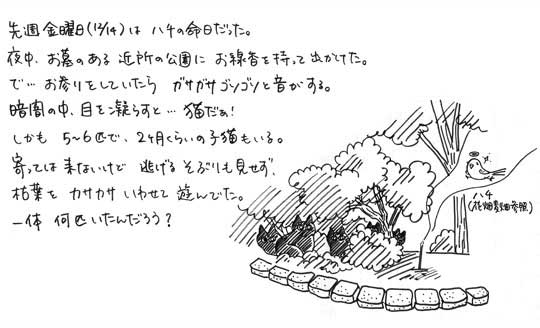 先週金曜日(12/14)は ハチの命日だった。
夜中、お墓のある 近所の公園に お線香を持って出かけた。
で… お参りをしていたら ガサガサゴソゴソと音がする。
暗闇の中、目を凝らすと… 猫だぁ!
しかも 5〜6匹で、2ヶ月くらいの子猫もいる。
寄っては来ないけど 逃げるそぶりも見せず、
枯葉を カサカサ いわせて 遊んでた。
一体 何匹いたんだろう?
ハチ